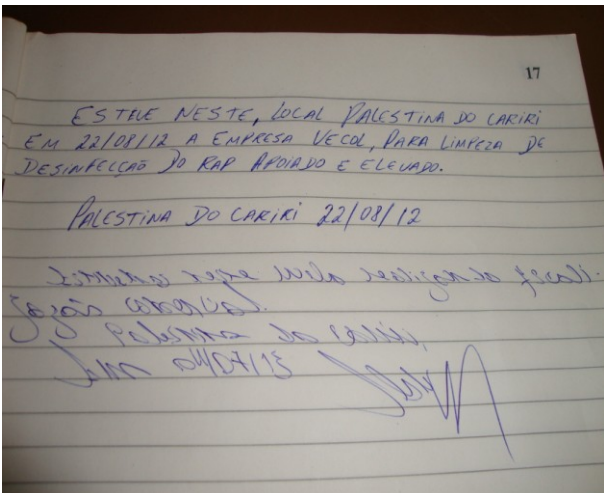 17
ESTEVE NESTE, LOCAL PALESTINA DO CARIRI
EM 22/08/12 A EMPRESA VECOL, PARA LIMPEZA DE
DESINFECÇÃO DO RAP APOIADO E ELEVADO.
PALESTINA DO CARIRI 22/08/12
realizando fiscali-
zação
Palestina do Cariri,
04/07/13